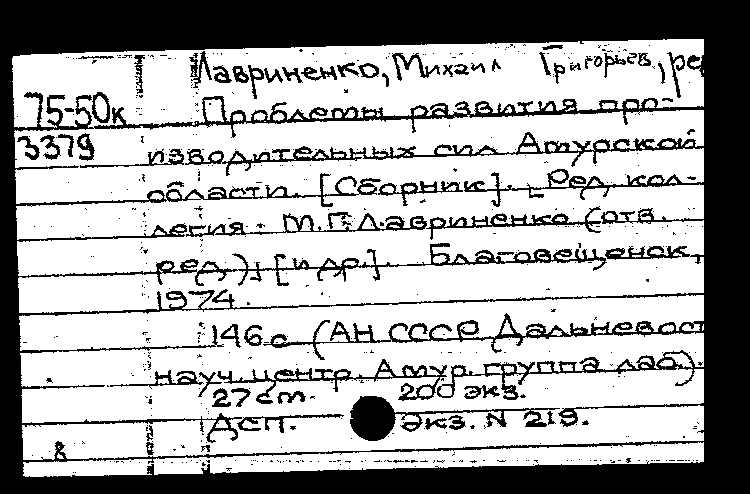 Лавриненко, Михаил Григорьев, ре
75-50к Проблемы развития про-
3379 изводительных сил Амурской
области. [Сборник]. [Ред. кол-
легия: М.Г. Лавриненко (отв.
ред.), [и др.]. Благовещенск,
1974.
146 с (АН СССР Дальневост
науч. центр. Амур. группа лаб.).
27 см. 200 экз.
ДСП. Экз. N 219.
8